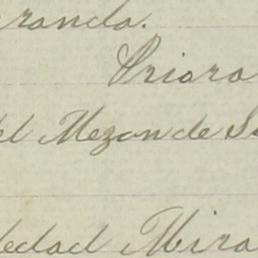 randa.
Priora
del Mezon de S
ledad Mira